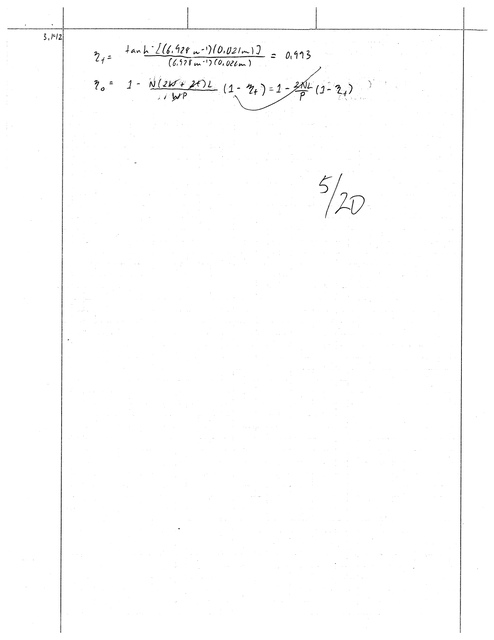 3.142
η_f = tanh[(6.928 m⁻¹)(0.021m)] / (6.928 m⁻¹)(0.021m) = 0.993
η_o = 1 - N(2W + 2t)L / WP (1 - η_f) = 1 - 2NL/P (1 - η_f)
5/20